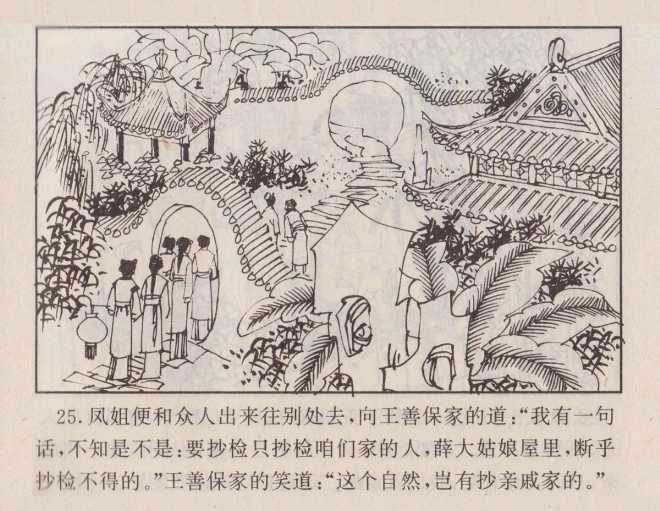 25. 凤姐便和众人出来往别处去，向王善保家的道：“我有一句
话，不知是不是：要抄检只抄检咱们家的人，薛大姑娘屋里，断乎
抄检不得的。”王善保家的笑道：“这个自然，岂有抄亲戚家的。”